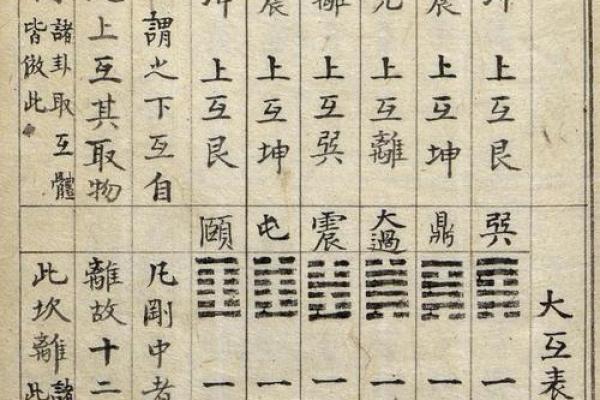 大互表
上互艮
震上互坤
兌上互離
離上互巽
震上互坤
上互艮
謂之下互自
上互其取物
諸卦取互體
皆倣此
巽
鼎
大過
震
屯
頤
一
一
一
一
一
一
凡剛中者
離故十二
此坎離
諸
此